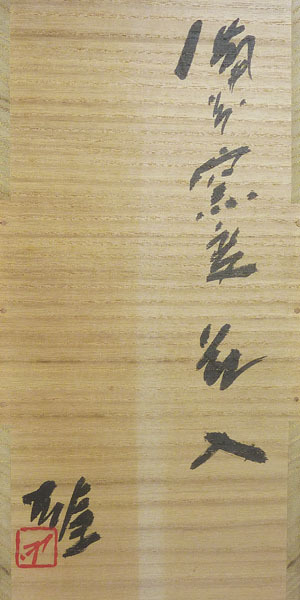 備前窯変花入
雄